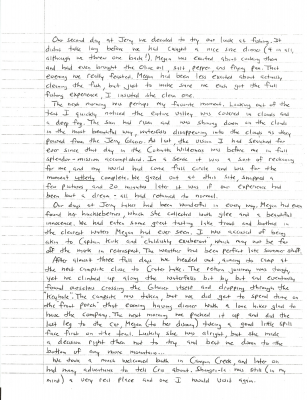 Our second day at Jeny we decided to try our luck at fishing. It
didn't take long before we had caught a nice size dinner (4 in all,
although we threw one back!). Megan was excited about cooking them
and had even brought the olive oil, salt, pepper, and frying pan. That
evening we really feasted. Megan had been less excited about actually
cleaning the fish, but just to make sure we each got the full
fishing experience, I insisted she clean one.
The next morning was perhaps my favorite moment. Looking out of the
tent I quickly noticed the entire valley was covered in clouds and
a deep fog. The sun had risen and was shining down on the clouds
in the most beautiful way, waterfalls disappearing into the clouds as they
poured from the Jeny Glacier. At last the vision I had searched for
ever since that day in the Cirque Wilderness was before me in full
splendor - mission accomplished. In a sense it was a sort of
for me, and my world had come full circle and was for the
moment utterly complete. We gazed out at this sight, snapped a
few pictures, and 20 minutes later it was if our experience had
been but a dream - all had returned to normal.
Our days at Jeny Lake had been wonderful in every way. Megan had even
found her huckleberries which she collected with glee and a beautiful
innocence. We had eaten some great tasting lake trout and bathed in
the clearest waters Megan had ever seen. I was accused of being
akin to Captain Kirk and childishly exuberant which may not be far
off the mark in retrospect. The weather had been perfect like summer itself.
After almost three full days we headed out, aiming to camp at
the next campsite close to Crater Lake. The return journey was tough,
yet we climbed up along the waterfalls bit by bit and eventually
found ourselves crossing the Glacier itself and dropping through the
Keyhole. The campsite was taken, but we did get to spend time on
the front porch that evening having dinner with a lone hiker glad to
have the company. The next morning we packed it up and did the
last leg to the car, Megan (to her dismay) taking a good little spill
face first on the trail. Luckily she was alright, but she made
a decision right then not to try and beat me down to the
bottom of any more mountains...
We drove a most welcomed back in Campus Creek, and later on
had many adventures to tell Cru about. Shangrila was still (in my
mind) a very real place and one I would visit again.